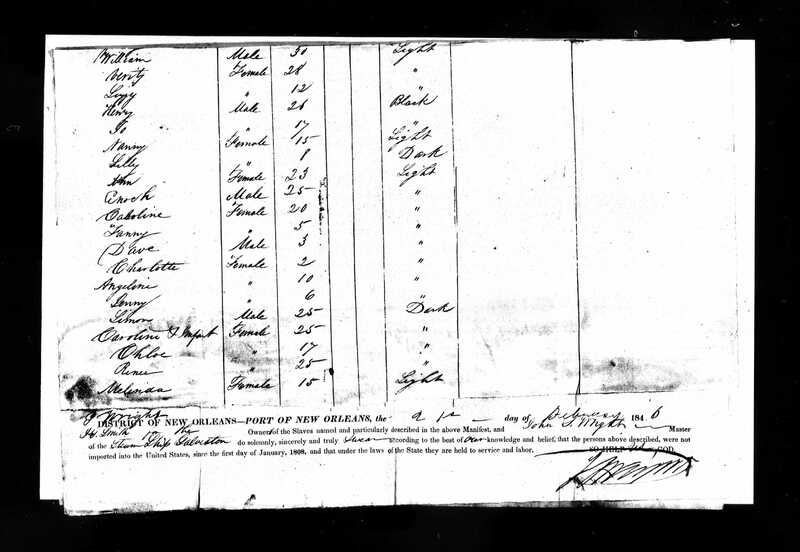 William Male 30 Light
Verity Female 28 "
Lizzy " 12 "
Henry Male 26 Black
Jo " 17 "
Nanny Female 15 Light
Lilly " 8 Dark
Ann Female 23 Light
Enoch Male 25 "
Caroline Female 20 "
Fanny " 5 "
Dave Male 3 "
Charlotte Female 2 "
Angeline " 10 "
Jenny " 6 "
Simon Male 25 Dark
Caroline & Infant Female 25 "
Chloe " 17 "
Renee " 25 "
Melinda Female 15 Light
J Wright
DISTRICT OF NEW ORLEANS—PORT OF NEW ORLEANS, the 1st day of February 1846
H. Smith Owner of the Slaves named and particularly described in the above Manifest, and John S. Wright Master
of the Steam Ship Galveston do solemnly, sincerely and truly Swear according to the best of our knowledge and belief, that the persons above described, were not
imported into the United States, since the first day of January, 1808, and that under the laws of the State they are held to service and labor, SO HELP GOD.